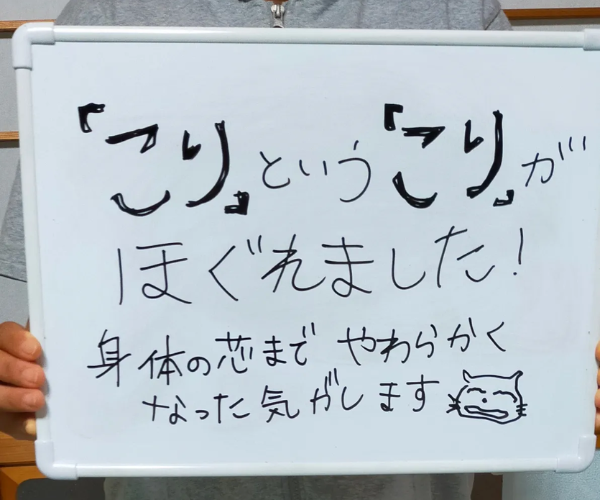 『こり』という『こり』が
ほぐれました!
身体の芯まで やわらかく
なった気がします